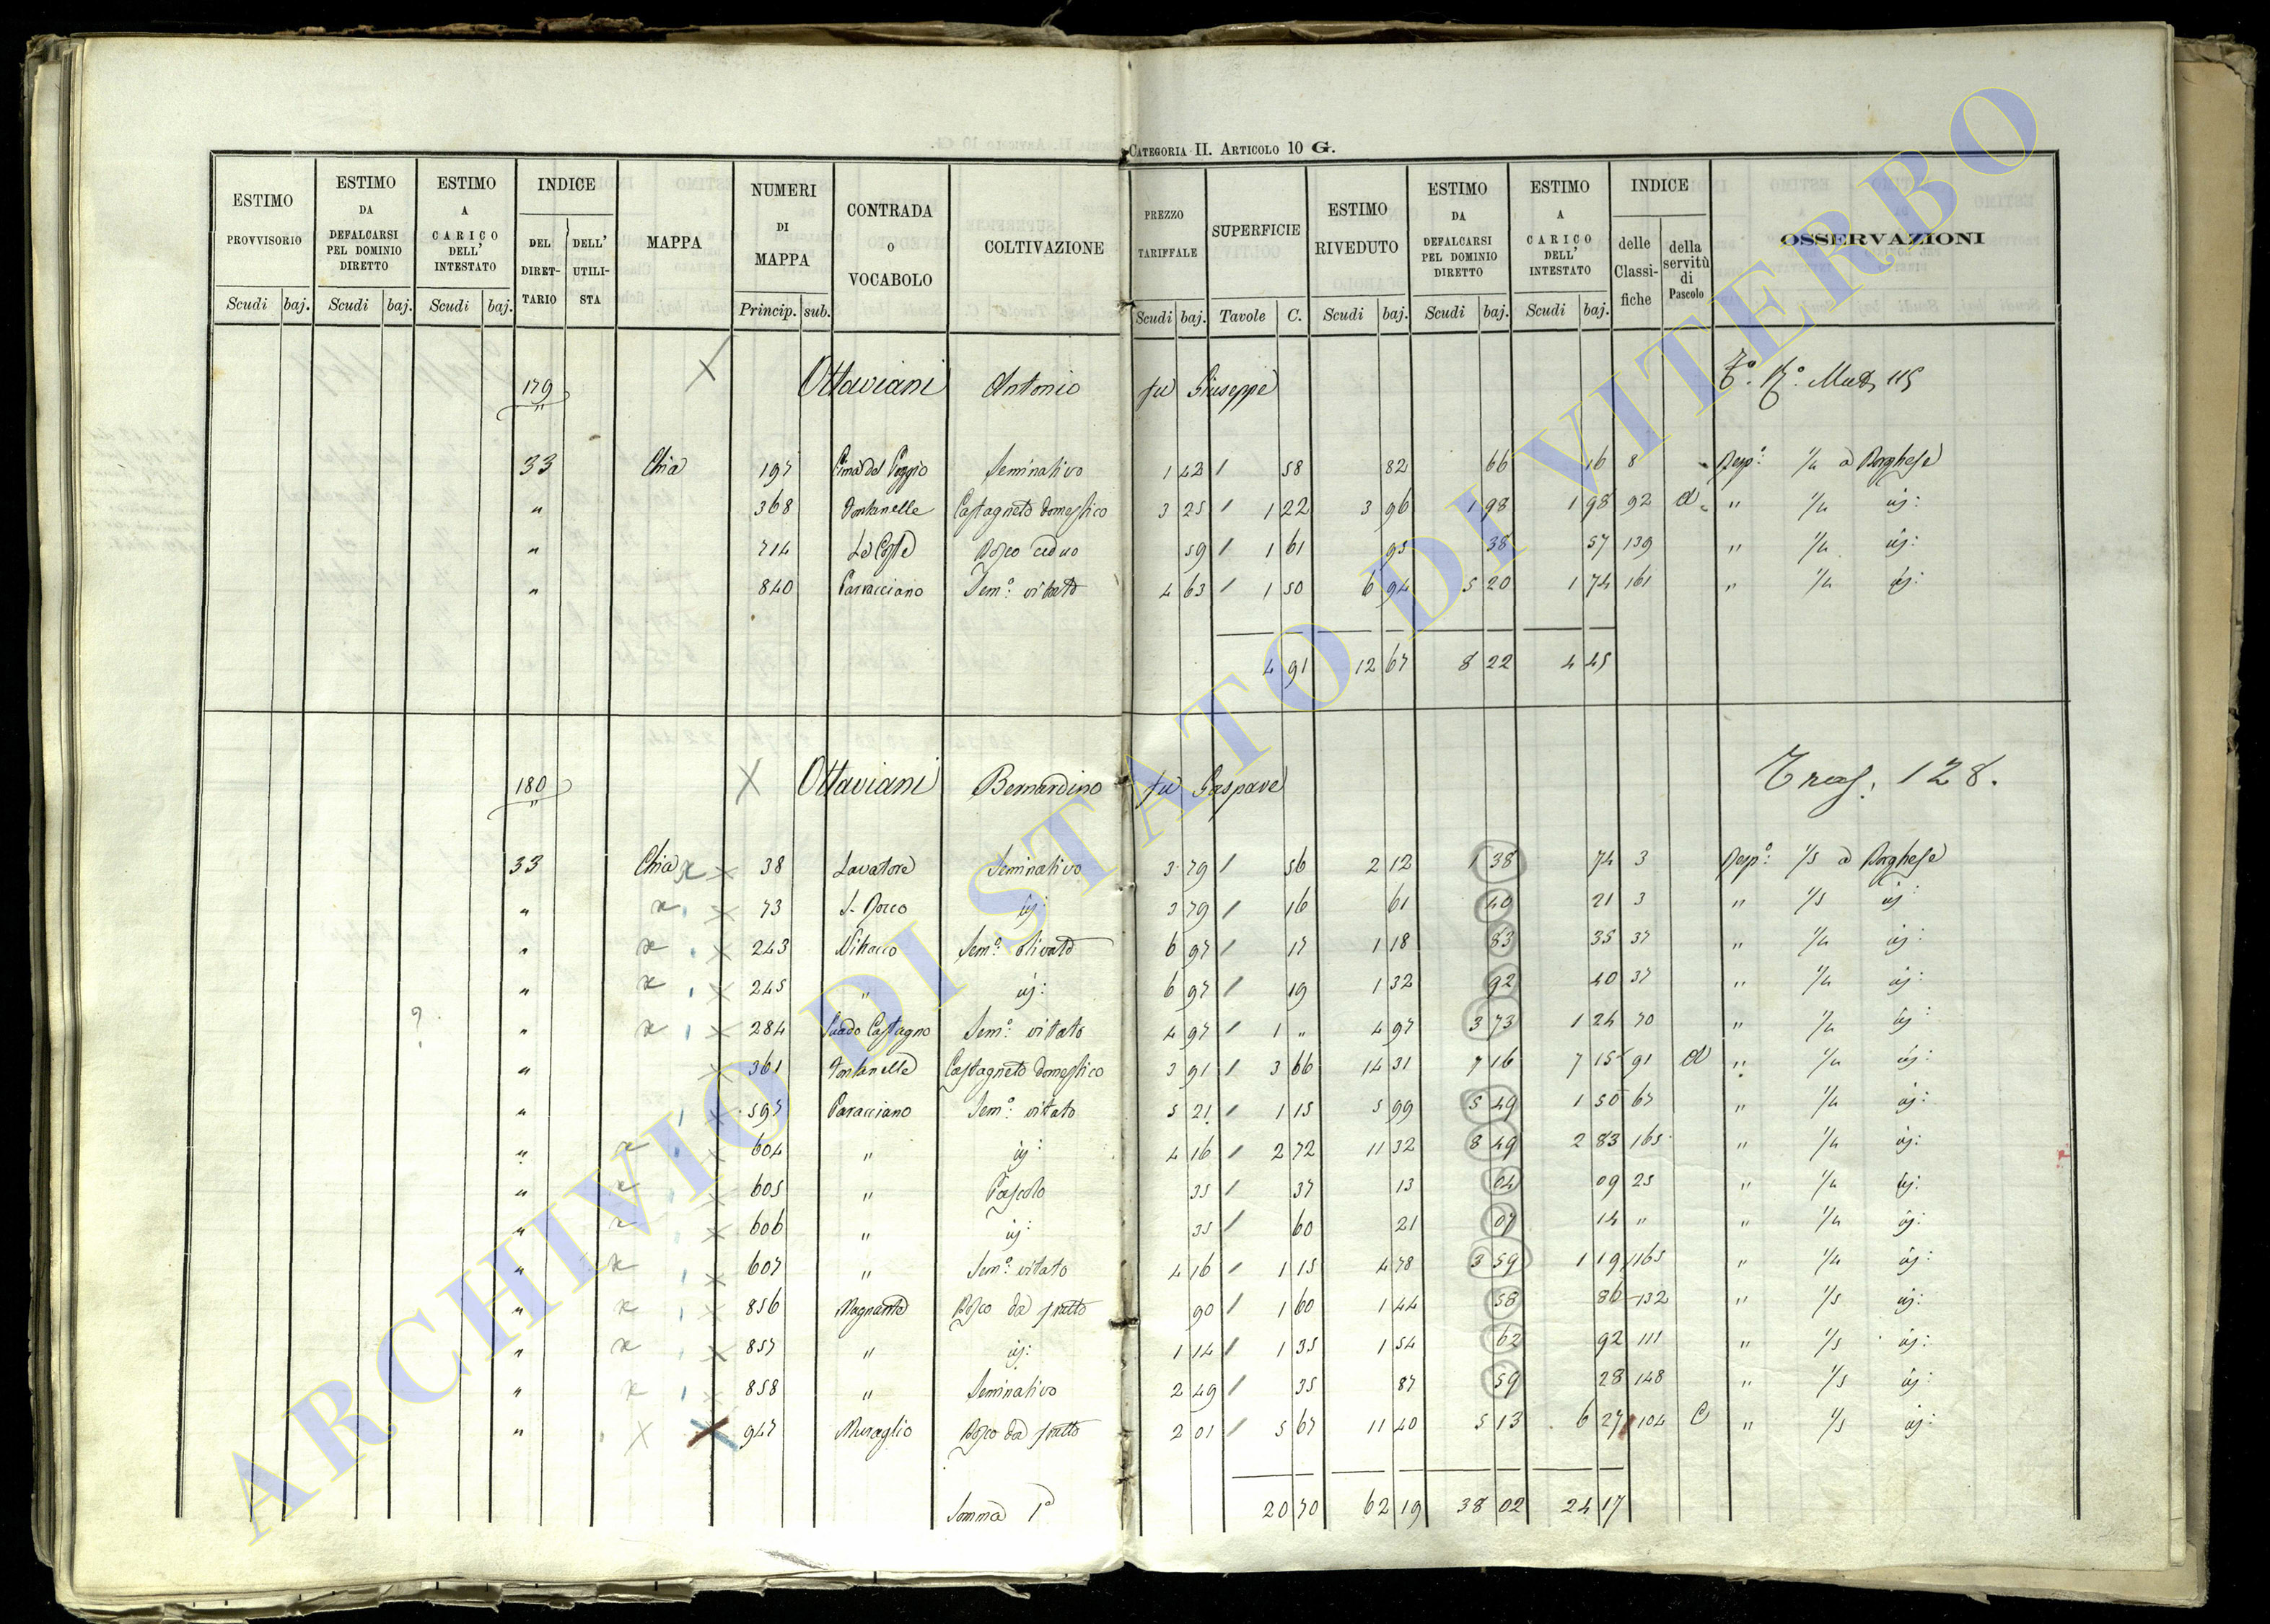 CATEGORIA II. ARTICOLO 10 G.
ESTIMO PROVVISORIO Scudi baj.
ESTIMO DA DEFALCARSI PEL DOMINIO DIRETTO Scudi baj.
ESTIMO A CARICO DELL' INTESTATO Scudi baj.
INDICE DEL DIRETTARIO DELL' UTILISTA
MAPPA
NUMERI DI MAPPA Princip. sub.
CONTRADA O VOCABOLO
COLTIVAZIONE
PREZZO TARIFFALE Scudi baj.
SUPERFICIE Tavole C.
ESTIMO RIVEDUTO Scudi baj.
ESTIMO DA DEFALCARSI PEL DOMINIO DIRETTO Scudi baj.
ESTIMO A CARICO DELL' INTESTATO Scudi baj.
INDICE delle Classifiche della servitù di Pascolo
OSSERVAZIONI
179 Ottaviani Antonio fu Giuseppe 115
33 Chia 197 Cima del Poggio Seminativo 1 42 / 58 82 66 16 8 Risp: 1/4 a Borghese
" 368 Fontanelle Castagneto domestico 3 25 / 1 22 3 96 1 98 1 98 92 d " 1/4 id:
" 714 Le Coste Bosco ceduo 59 / 1 61 95 38 57 139 " 1/4 id:
" 840 Parracciano Sem.o vitato 4 63 / 1 50 6 94 5 20 1 74 161 " 1/4 id:
4 91 12 67 8 22 4 45
180 Ottaviani Bernardino fu Gaspare Tras. 128.
33 Chia 38 Lavatore Seminativo 3 79 / 56 2 12 1 38 74 3 Risp: 1/5 a Borghese
" 73 S. Rocco id: 3 79 / 16 61 40 21 3 " 1/5 id:
" 243 Sem.o olivato 6 97 / 17 1 18 83 35 37 " 1/4 id:
" 245 " id: 6 97 / 19 1 32 92 40 37 " 1/4 id:
? " 284 Castagno Sem.o vitato 4 97 / 1 " 4 97 3 73 1 24 70 " 1/4 id:
" 361 Fontanelle Castagneto domestico 3 91 / 3 66 14 31 7 16 7 15 91 d " 1/4 id:
" 597 Paracciano Sem.o vitato 5 21 / 1 15 5 99 49 1 50 67 " 1/4 id:
" 604 " id: 4 16 / 2 72 11 32 8 49 2 83 165 " 1/4 id:
" 605 " Pascolo 35 / 37 13 04 09 25 " 1/4 id:
" 606 " id: 35 / 60 21 07 14 " " 1/4 id:
" 607 " Sem.o vitato 4 16 / 1 15 4 78 3 59 1 19 165 " 1/4 id:
" 856 Magnante Bosco da frutto 90 / 1 60 1 44 58 86 132 " 1/5 id:
" 857 " id: 1 14 / 1 35 1 54 62 92 111 " 1/5 id:
" 858 " Seminativo 2 49 / 35 87 59 28 148 " 1/5 id:
" 947 Muraglio Bosco da frutto 2 01 / 5 67 11 40 5 13 6 27 104 C " 1/5 id:
Somma 20 70 62 19 38 02 24 17
ARCHIVIO DI STATO DI VITERBO